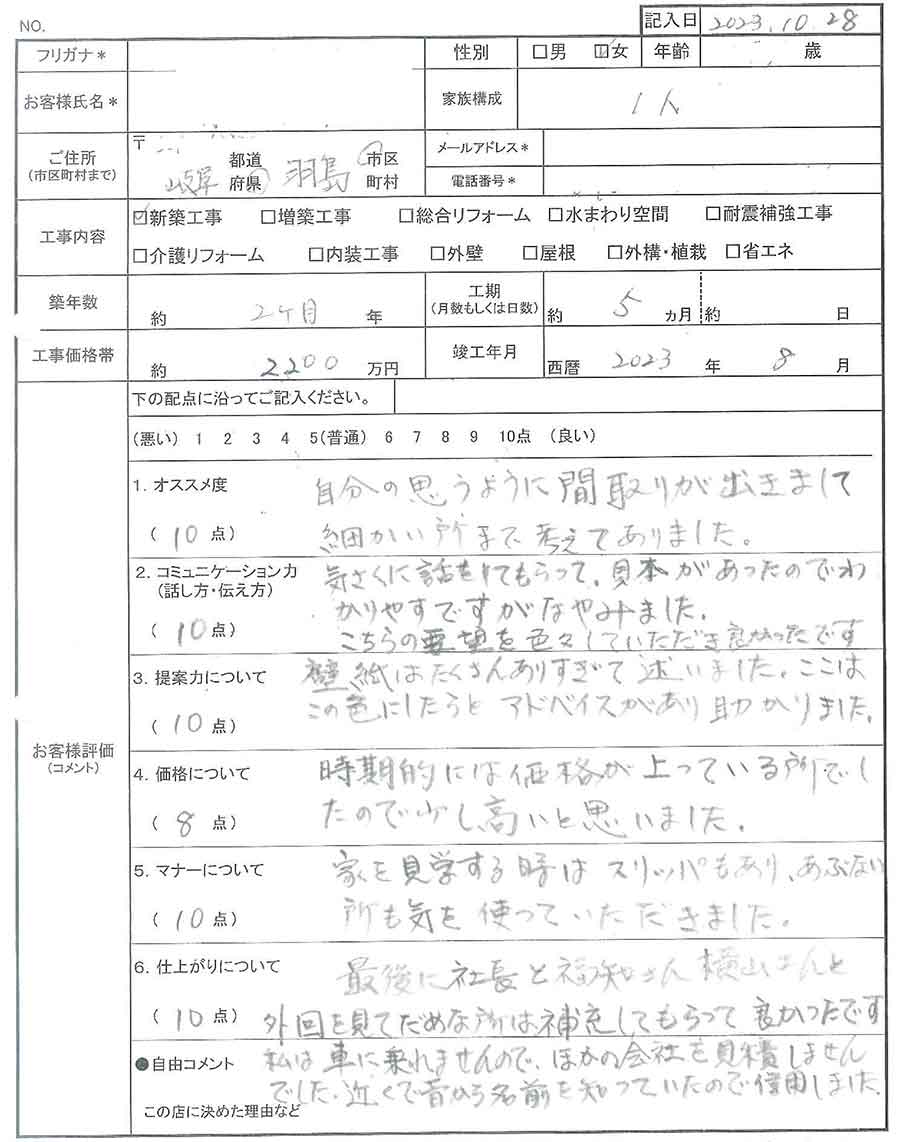 NO.
記入日 2023.10.28
フリガナ* 性別 □男 ☑女 年齢 歳
お客様氏名* 家族構成 1人
〒
ご住所 都道 市区 メールアドレス*
(市区町村まで) 岐阜 府県 羽島 町村 電話番号*
工事内容 ☑新築工事 □増築工事 □総合リフォーム □水まわり空間 □耐震補強工事
□介護リフォーム □内装工事 □外壁 □屋根 □外構・植栽 □省エネ
築年数 約 2ケ月 年 工期 (月数もしくは日数) 約 5 ヵ月 約 日
工事価格帯 約 2200 万円 竣工年月 西暦 2023 年 8 月
下の配点に沿ってご記入ください。
(悪い) 1 2 3 4 5(普通) 6 7 8 9 10点 (良い)
お客様評価
(コメント)
1. オススメ度 自分の思うように間取りが出きまして
(10点) 細かい所まで考えてありました。
2. コミュニケーション力 気さくに話をしてもらって、見本があったのでわ
(話し方・伝え方) かりやすですがなやみました。
(10点) こちらの要望を色々していただき良かったです
3. 提案力について 壁紙はたくさんありすぎて迷いました。ここは
(10点) この色にしたらとアドベイスがあり助かりました。
4. 価格について 時期的には価格が上っている所でし
(8点) たので少し高いと思いました。
5. マナーについて 家を見学する時はスリッパもあり、あぶない
(10点) 所も気を使っていただきました。
6. 仕上がりについて 最後に社長と福知さん横山さんと
(10点) 外回を見てだめな所は補充してもらって良かったです
●自由コメント 私は車に乗れませんので、ほかの会社を見積しません
でした。近くで昔から名前を知っていたので信用しました。
この店に決めた理由など